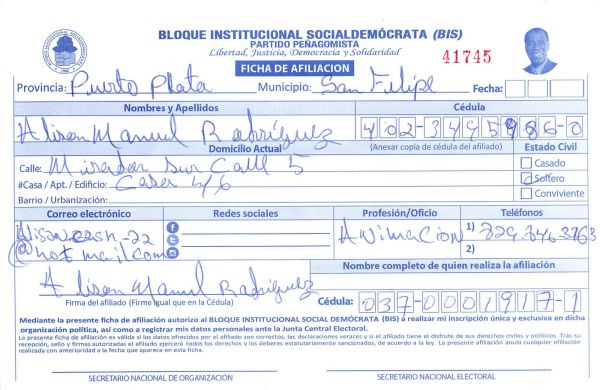 BLOQUE INSTITUCIONAL SOCIALDEMÓCRATA (BIS)
PARTIDO PEÑAGOMISTA
Libertad, Justicia, Democracia y Solidaridad
41745
FICHA DE AFILIACION
Provincia: Puerto Plata Municipio: San Felipe Fecha:
Nombres y Apellidos Cédula
Alison Manuel Rodríguez 402-3495986-0
Domicilio Actual (Anexar copia de cédula del afiliado) Estado Civil
Calle: Mirador Sur Calle 5 Casado
#Casa / Apt. / Edificio: Casa 46 Soltero
Barrio / Urbanización: Conviviente
Correo electrónico Redes sociales Profesión/Oficio Teléfonos
Alison cash-22 ANIMACION 1) 829.846.3763
@hotmail.com 2)
Nombre completo de quien realiza la afiliación
Alison Manuel Rodríguez
Firma del afiliado (Firme igual que en la Cédula) Cédula: 037-0001917-1
Mediante la presente ficha de afiliación autorizo al BLOQUE INSTITUCIONAL SOCIAL DEMÓCRATA (BIS) a realizar mi inscripción única y exclusiva en dicha
organización política, así como a registrar mis datos personales ante la Junta Central Electoral.
La presente ficha de afiliación es válida si los datos ofrecidos por el afiliado son correctos, las declaraciones veraces y si el afiliado tiene el disfrute de sus derechos civiles y políticos. Tras su
recepción, sello y firmas autorizadas el afiliado ejercerá todos los derechos y los deberes estatutariamente sancionados, de acuerdo a la ley. La presente afiliación anula cualquier afiliación
realizada con anterioridad a la fecha que aparece en esta ficha.
SECRETARIO NACIONAL DE ORGANIZACIÓN SECRETARIO NACIONAL ELECTORAL